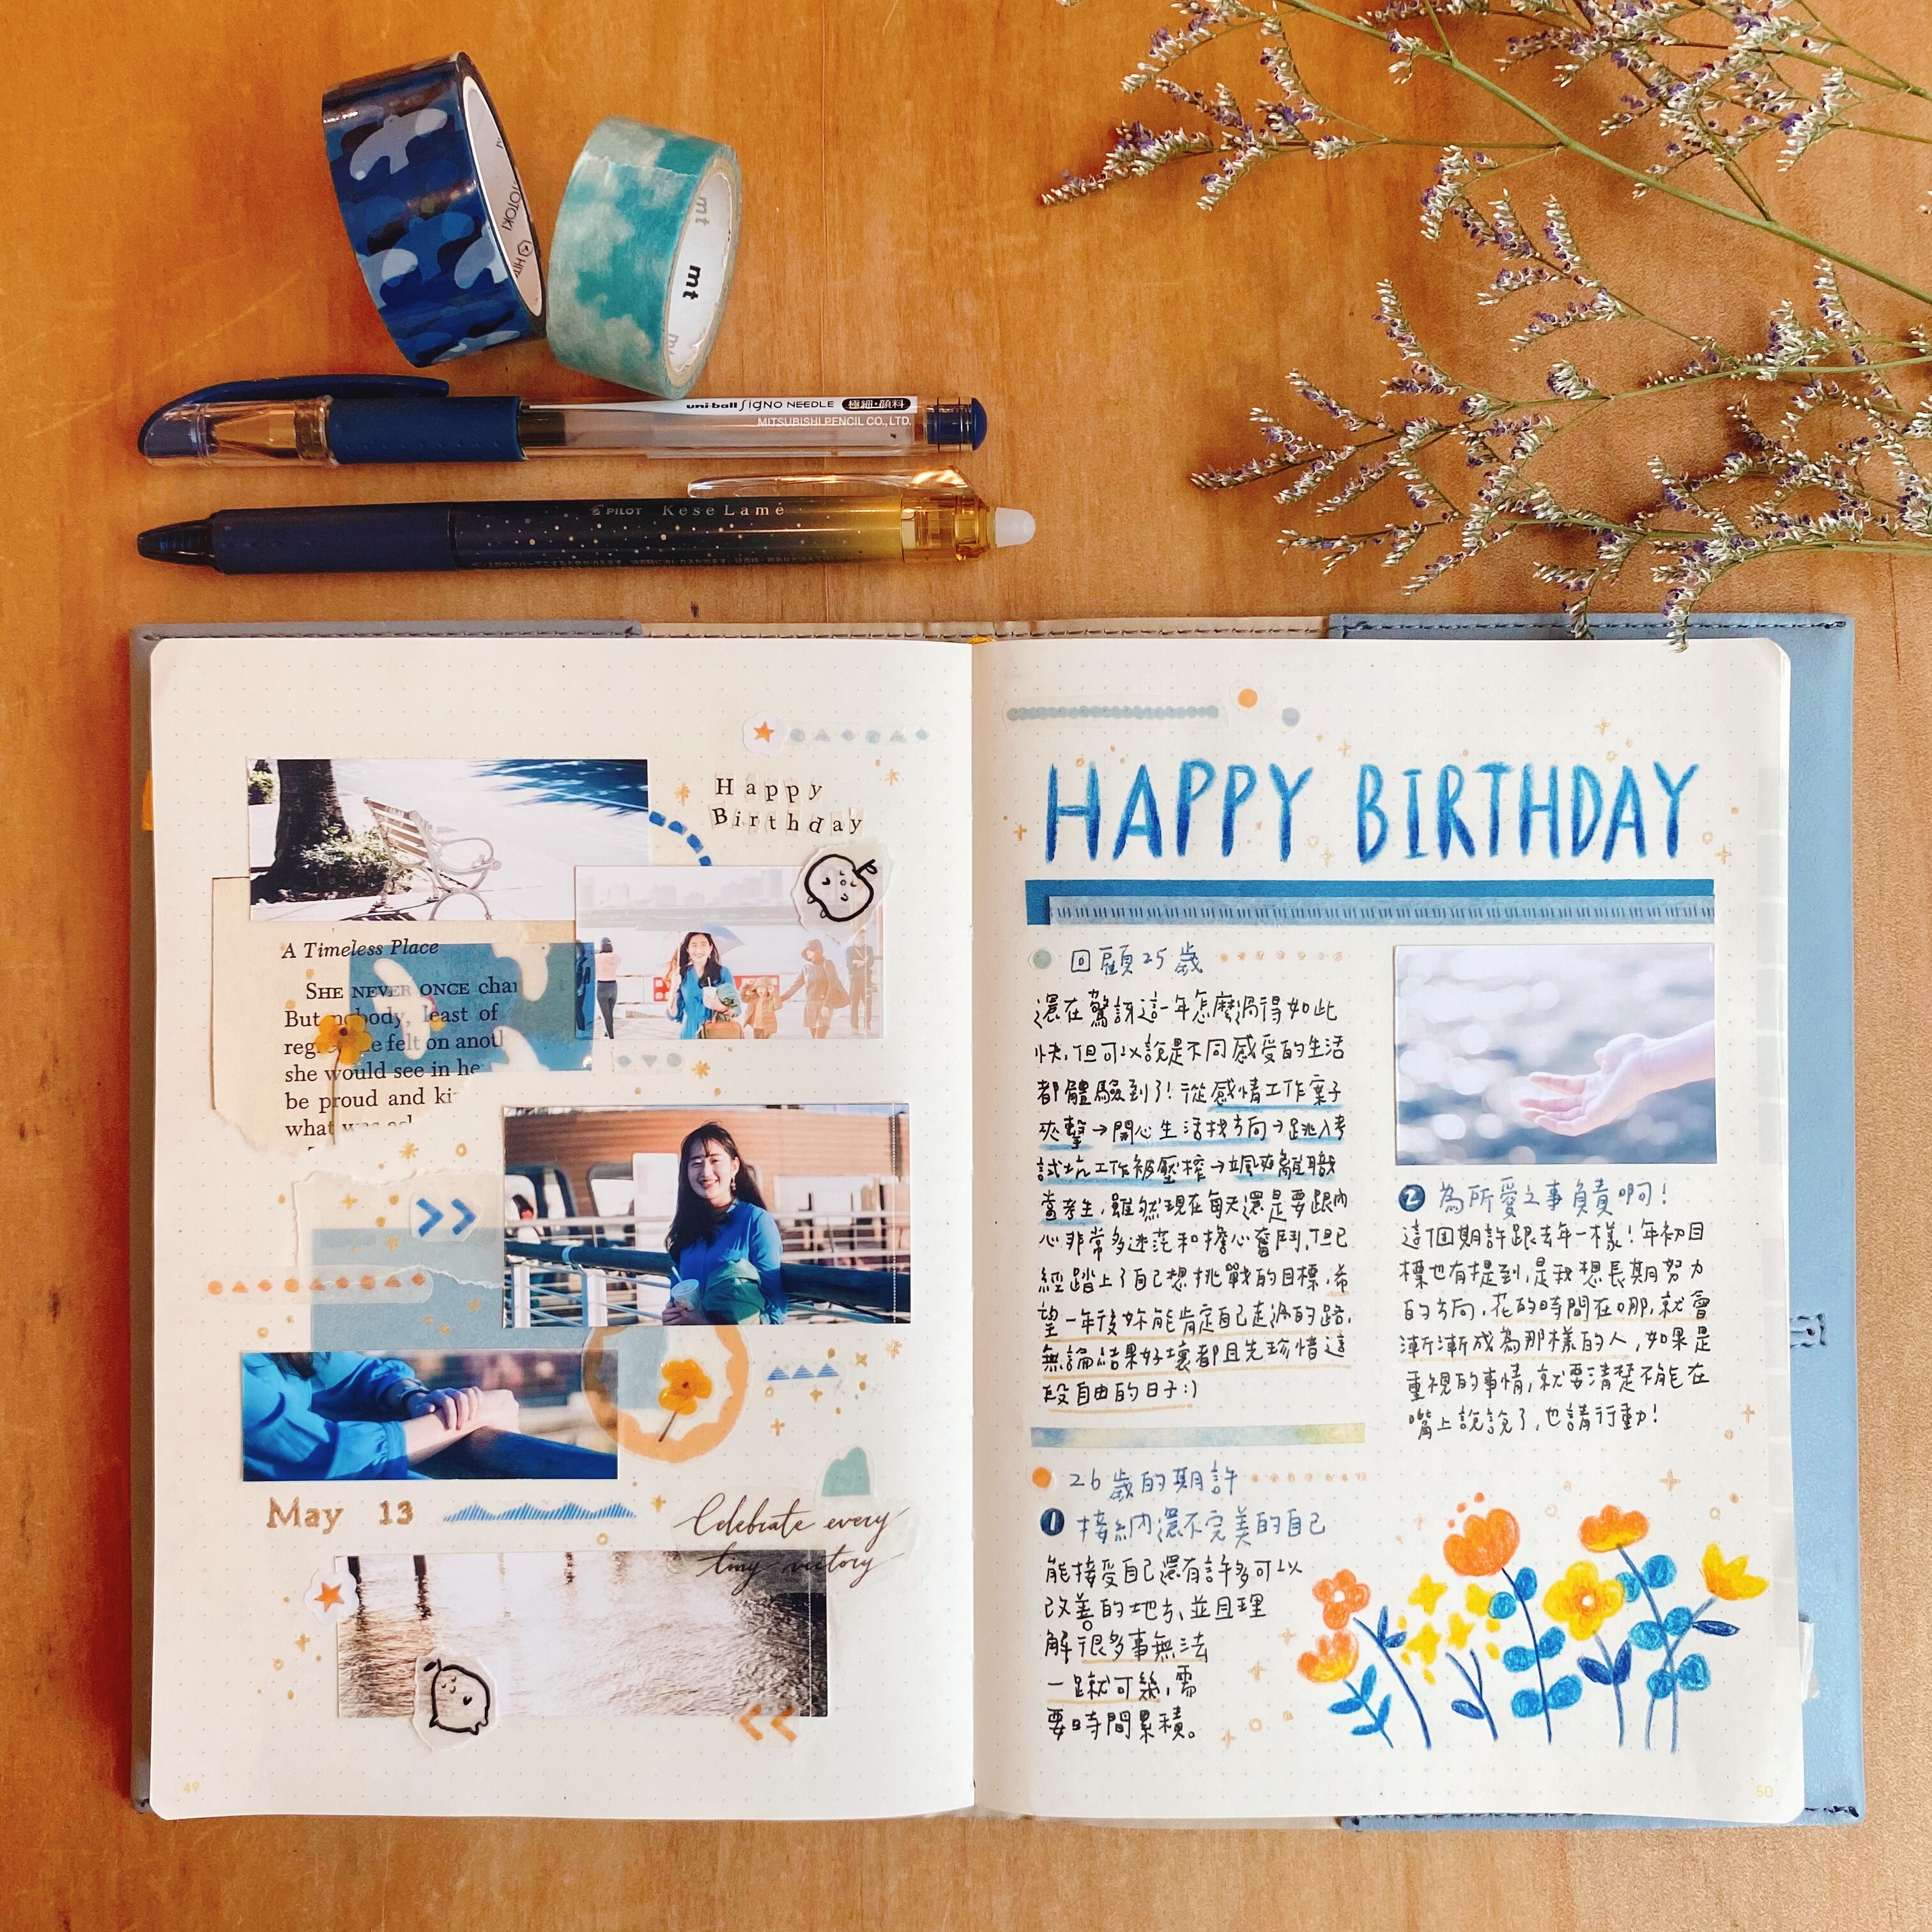 HITOTOKI
HIT
mt
mt
uni-ball SIGNO NEEDLE
MITSUBISHI PENCIL CO., LTD.
PILOT KeseLamé
Happy
Birthday
A Timeless Place
SHE NEVER ONCE char
But nobody, least of
regr e felt on anot
she would see in he
be proud and ki
what was
May 13
Celebrate every
tiny victory
49
HAPPY BIRTHDAY
回顧25歲
還在驚訝這一年怎麼過得如此
快,但可以說是不同感受的生活
都體驗到了!從感情工作案子
夾擊→開心生活找方向→跳入考
試坑工作被壓榨→颯爽離職
當考生,雖然現在每天還是要跟內
心非常多迷茫和擔心奮鬥,但已
經踏上了自己想挑戰的目標,希
望一年後妳能肯定自己走過的路,
無論結果好壞都且先珍惜這
段自由的日子:)
26歲的期許
1 接納還不完美的自己
能接受自己還有許多可以
改善的地方,並且理
解很多事無法
一蹴可幾,需
要時間累積。
2 為所愛之事負責啊!
這個期許跟去年一樣!年初目
標也有提到,是我想長期努力
的方向,花的時間在哪,就會
漸漸成為那樣的人,如果是
重視的事情,就要清楚不能在
嘴上說說了,也請行動!
50